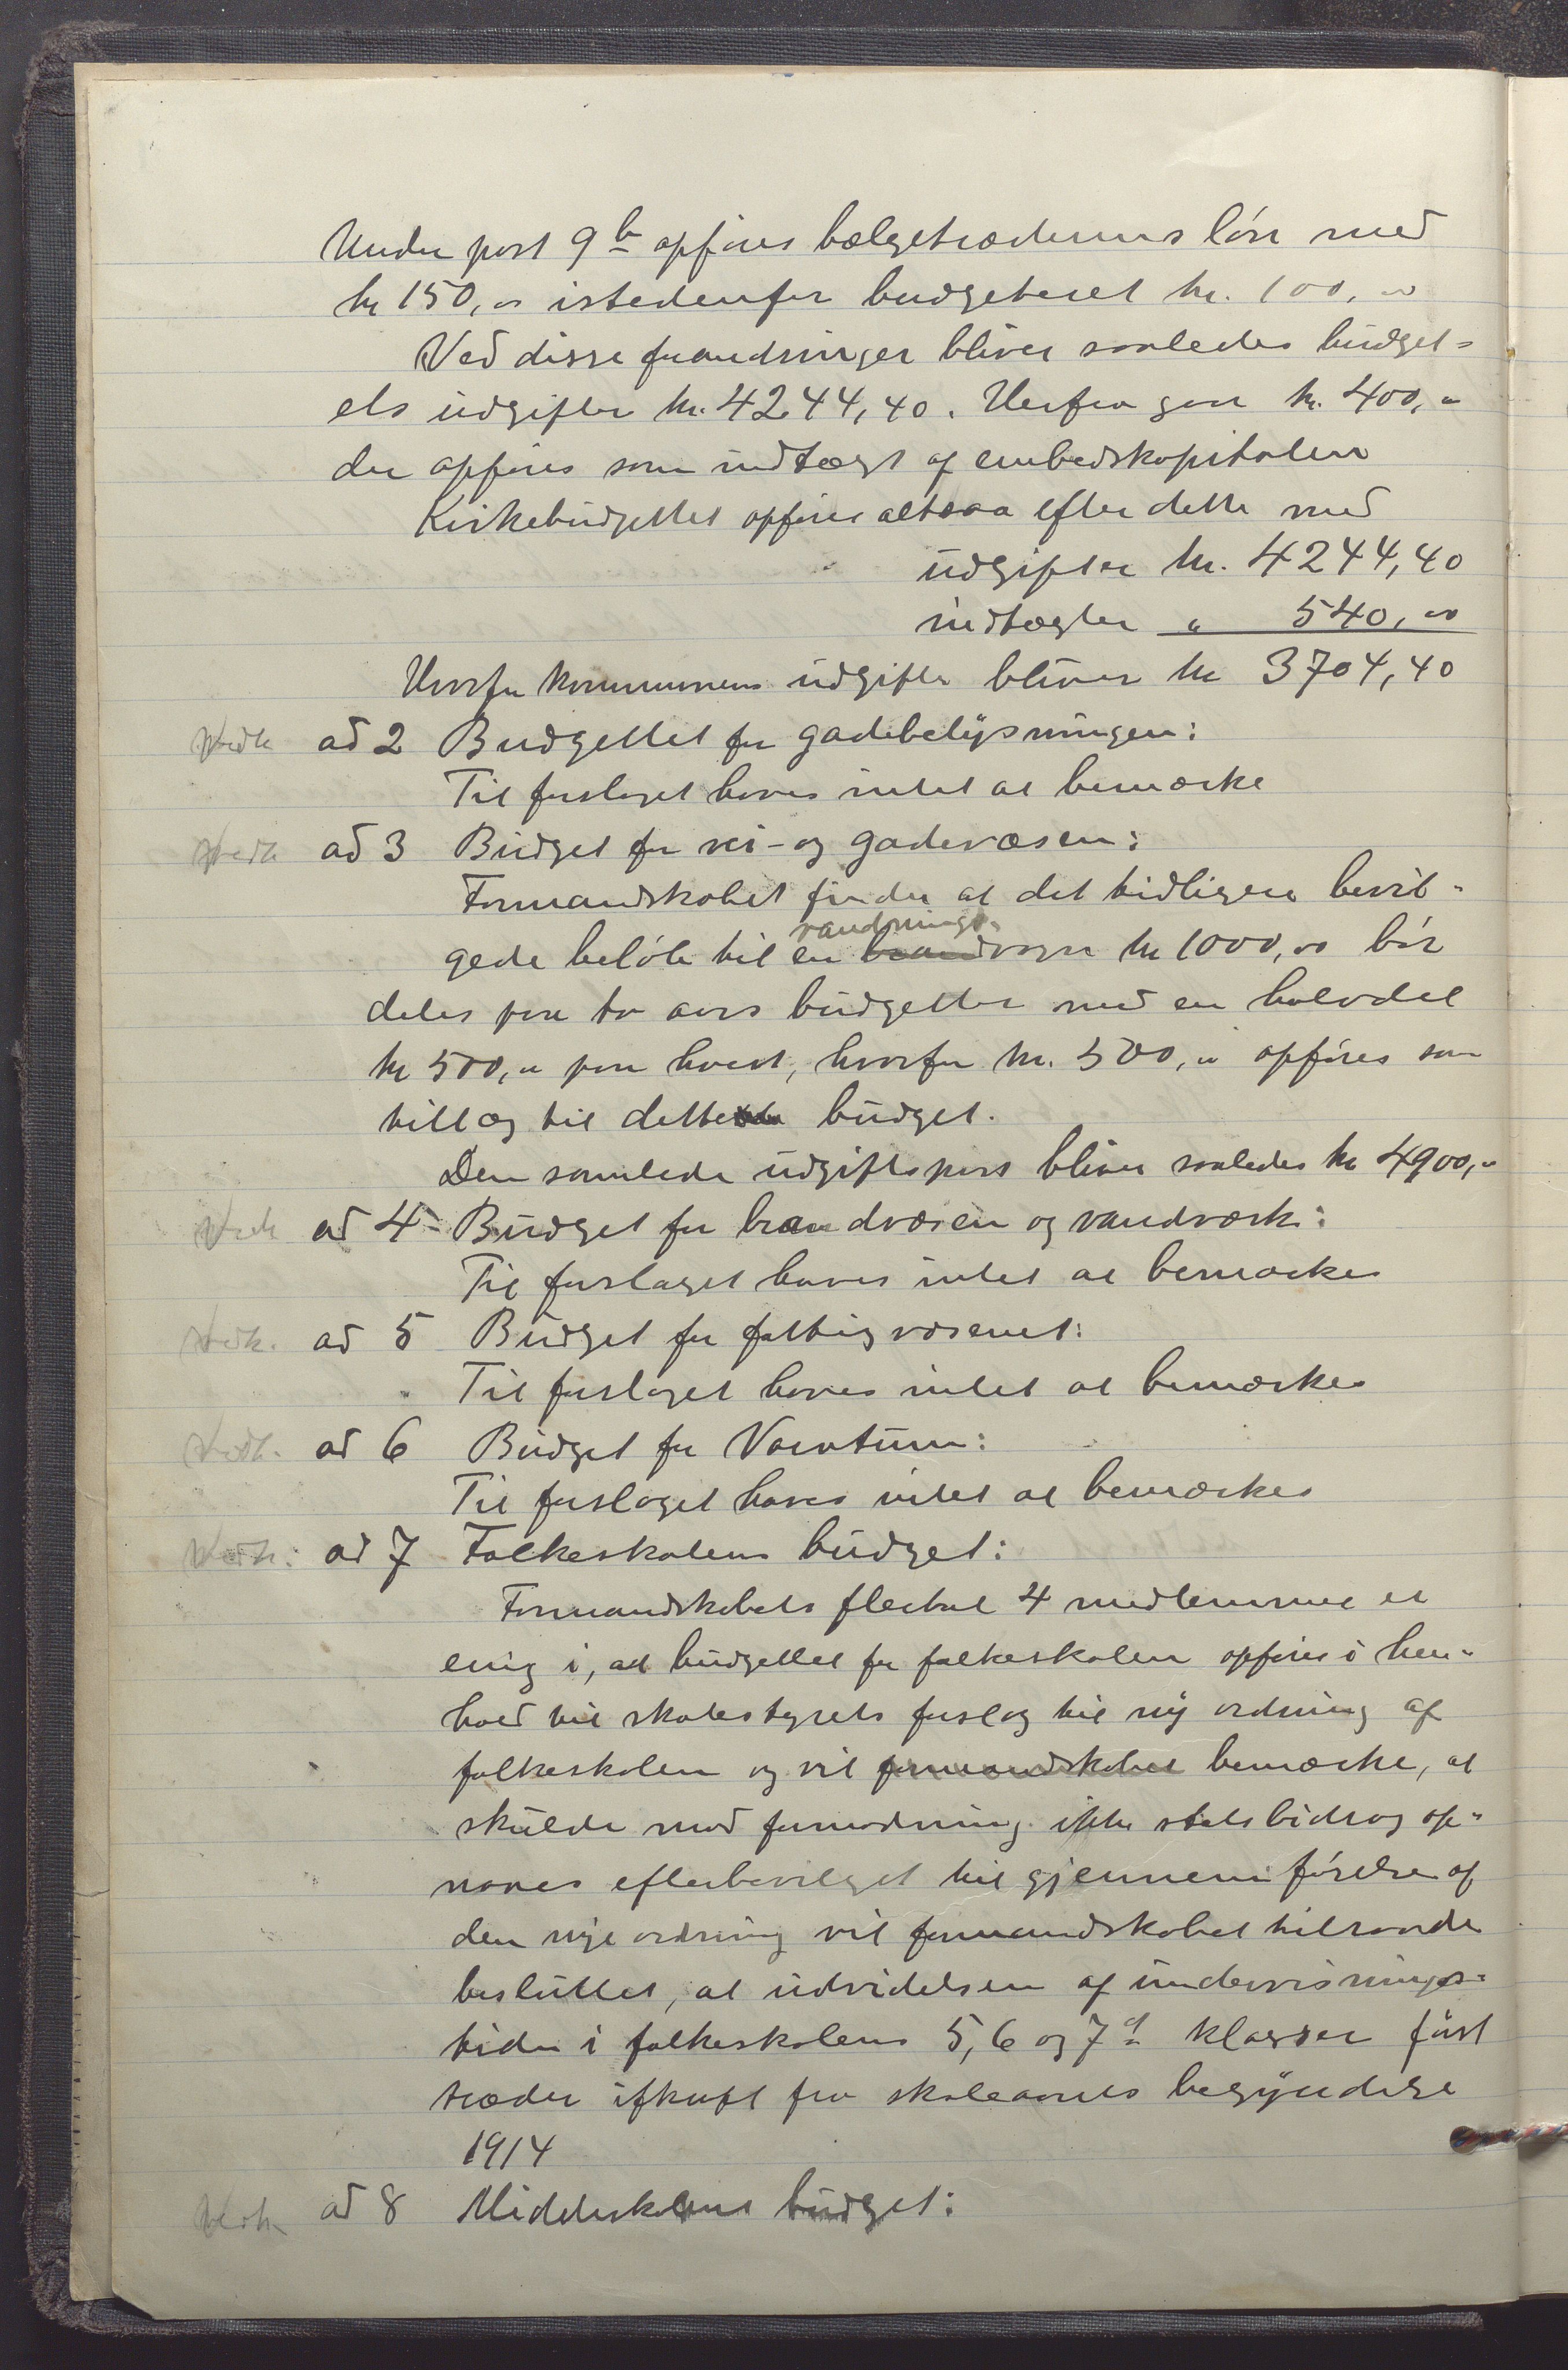 Under post 9 b opføres bælgetræderens løn med
kr 150,00 istedenfor budgeteret kr. 100,00
Ved disse forandringer bliver saaledes budget-
ets udgifter kr. 4244,40. Herfra gaar kr. 400,00
der opføres som indtægt af embedskapitalen
Kirkebudgettet opføres altsaa efter dette med
udgifter kr. 4244,40
indtægter " 540,00
Hvorfor kommunens udgifter bliver kr 3704,40
Vedt. ad 2 Budgettet for gadebelysningen:
Til forslaget haves intet at bemærke
Vedt. ad 3 Budget for vei- og gadevæsen:
Formandskabet finder at det tidligere bevil-
vandnings-
gede beløb til en brandvogn kr 1000,00 bør
deles paa to aars budgetter med en halvdel
kr 500,00 paa hvert, hvorfor kr. 500,00 opføres som
tillæg til dette budget.
Den samlede udgiftspost bliver saaledes kr 4900,00
Vedt. ad 4 Budget for brandvæsen og vandværk:
Til forslaget haves intet at bemærke
Vedt. ad 5 Budget for fattigvæsenet:
Til forslaget haves intet at bemærke
Vedt. ad 6 Budget for Varatun:
Til forslaget haves intet at bemærke
Vedt. ad 7 Folkeskolens budget:
Formandskabets flertal 4 medlemmer er
enig i, at budgettet for folkeskolen opføres i hen-
hold til skolestyrets forslag til ny ordning af
folkeskolen og vil formandskabet bemærke, at
skulde mod formodning ikke statsbidrag op-
naaes efterbevilget til gjennemførelse af
den nye ordning vil formandskabet tilraade
besluttet, at udvidelsen af undervisnings-
tiden i folkeskolens 5, 6 og 7de klasser først
træder ifkraft fra skoleaarets begyndelse
1914
Vedt. ad 8 Middelskolens budget: